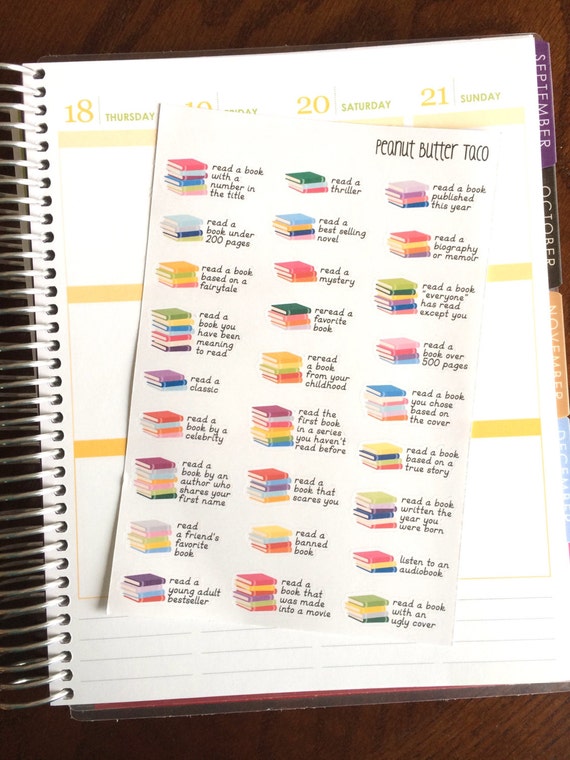 18 THURSDAY
19 FRIDAY
20 SATURDAY
21 SUNDAY
SEPTEMBER
OCTOBER
NOVEMBER
DECEMBER
Peanut Butter Taco
read a book
with a
number in
the title
read a
thriller
read a book
published
this year
read a
book under
200 pages
read a
best selling
novel
read a
biography
or memoir
read a book
based on a
fairytale
read a
mystery
read a book
"everyone"
has read
except you
read a
book you
have been
meaning
to read
reread a
favorite
book
read a
book over
500 pages
read a
classic
reread
a book
from your
childhood
read a book
you chose
based on
the cover
read a
book by a
celebrity
read the
first book
in a series
you haven't
read before
read a
book based
on a
true story
read a
book by an
author who
shares your
first name
read a
book that
scares you
read a book
written the
year you
were born
read
a friend's
favorite
book
read a
banned
book
listen to an
audiobook
read a
young adult
bestseller
read a
book that
was made
into a movie
read a book
with an
ugly cover